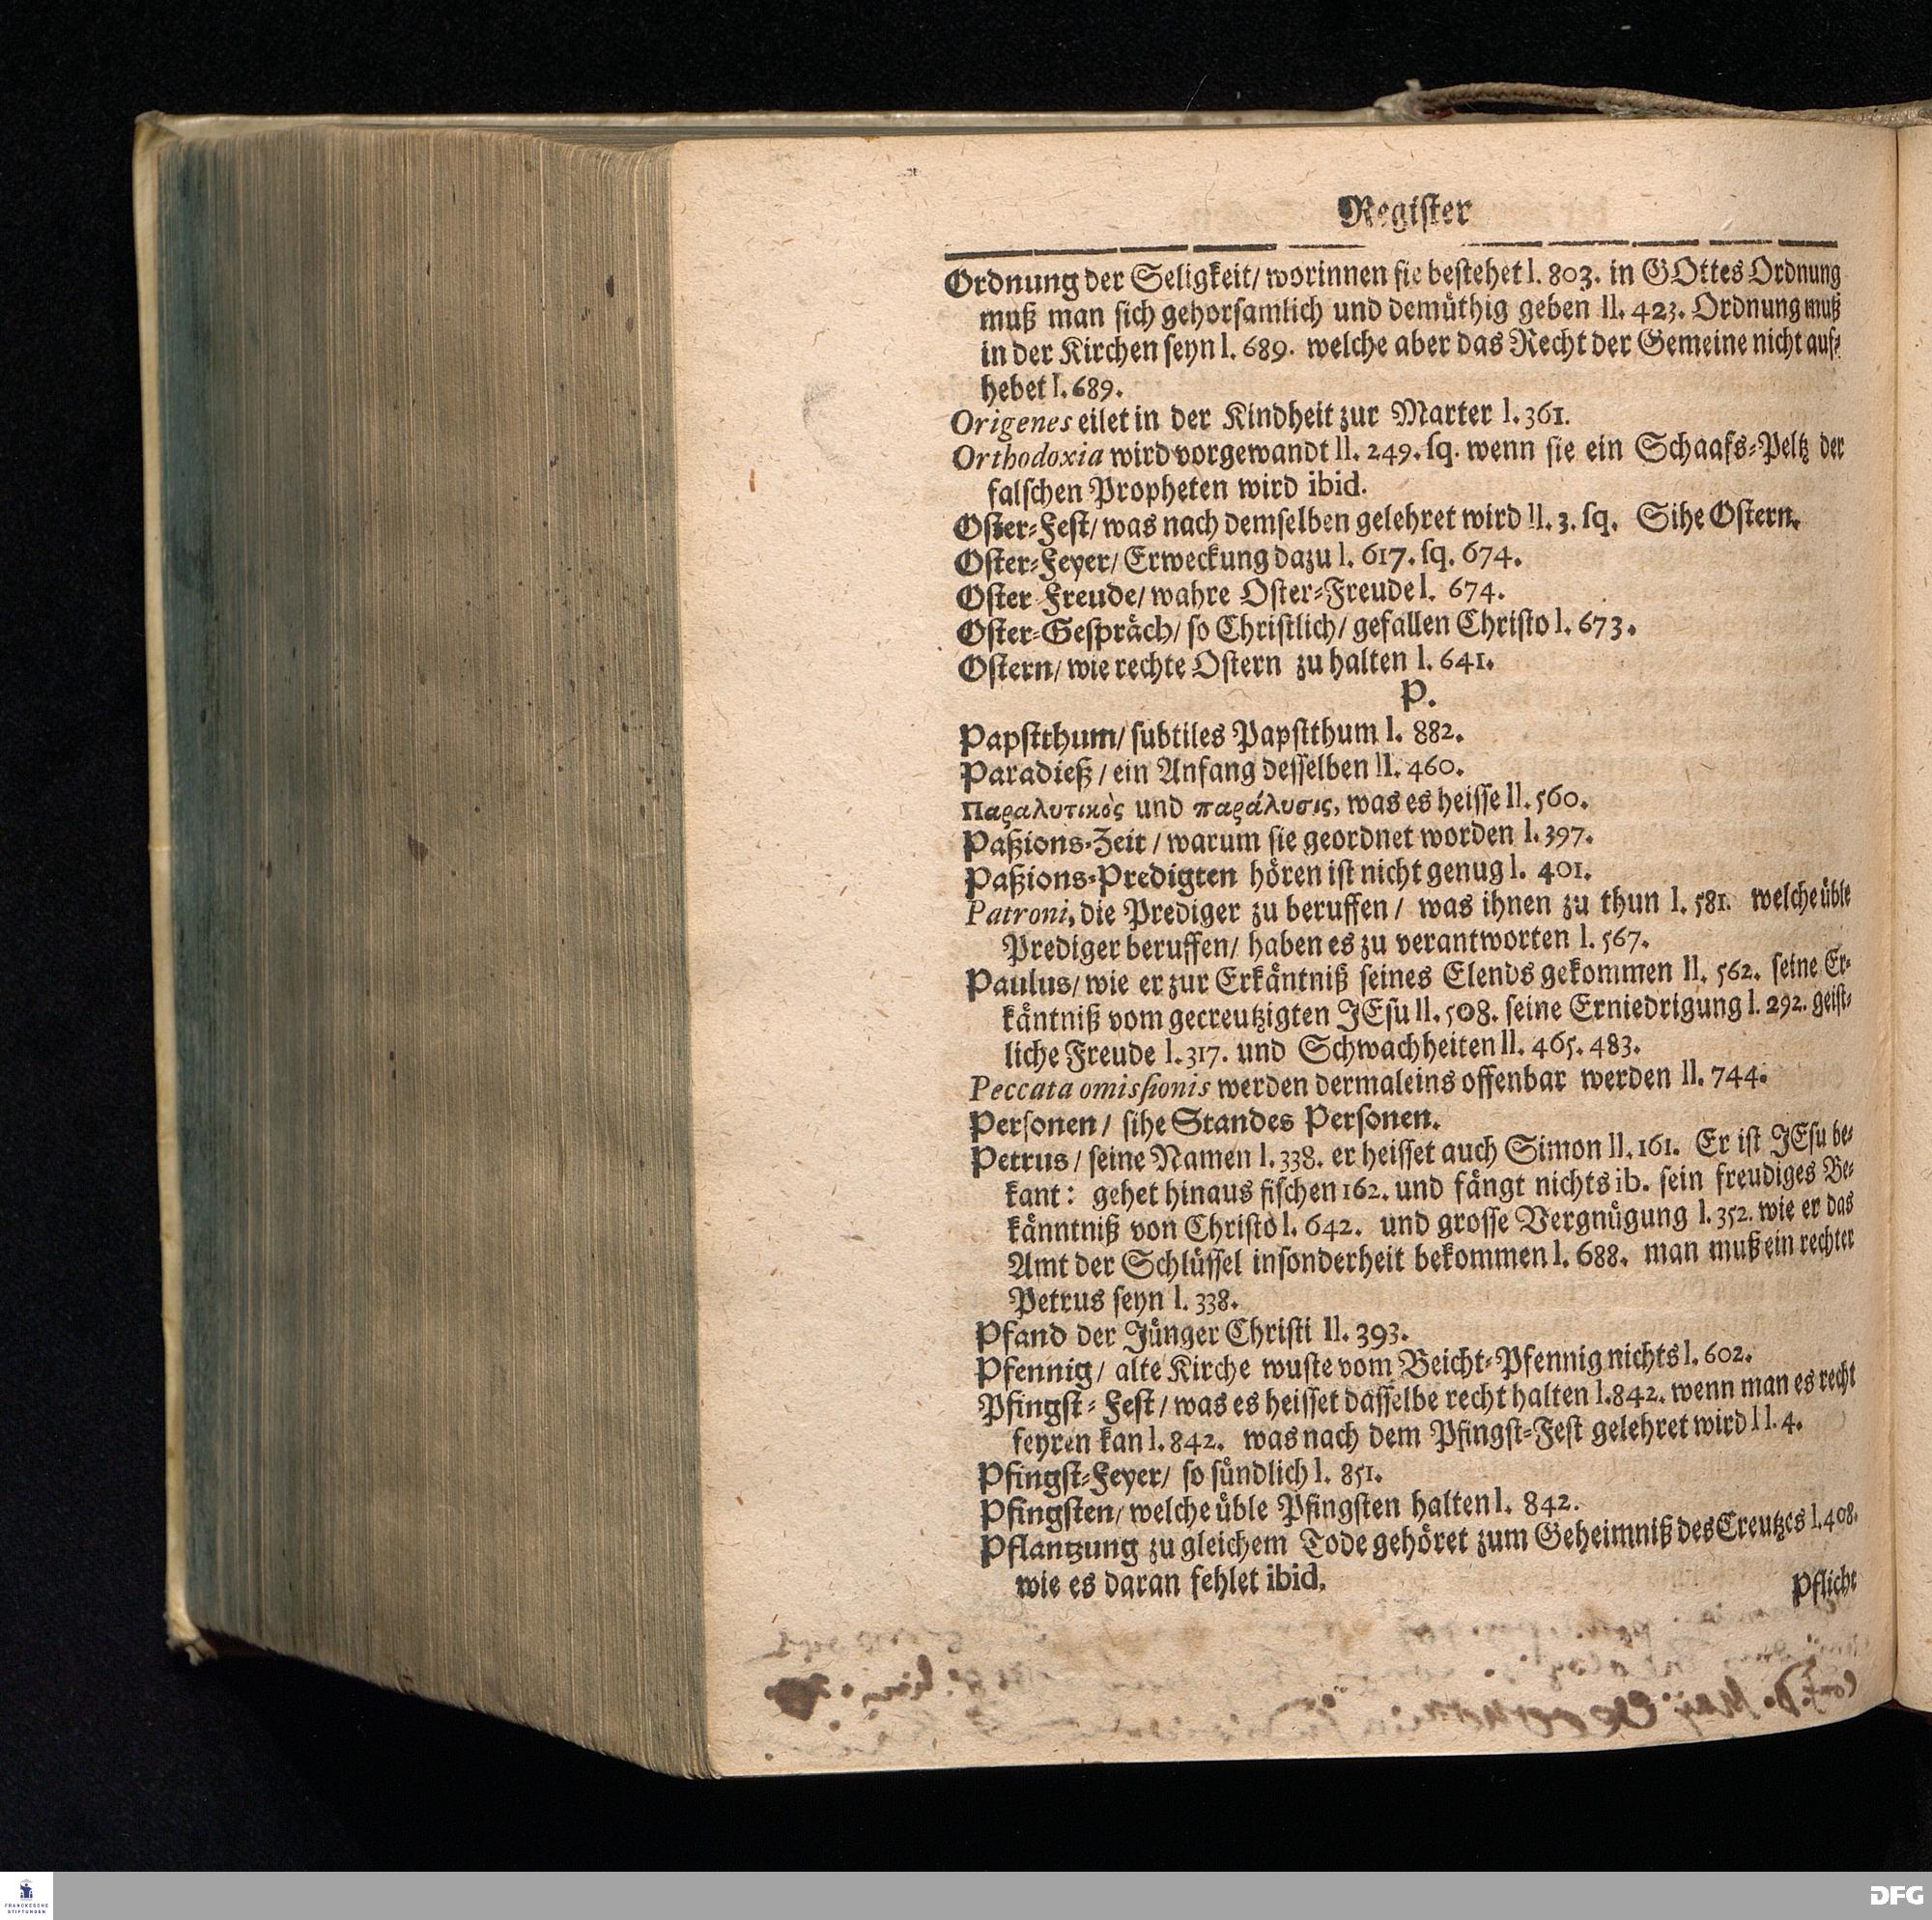 Register
Ordnung der Seligkeit/ worinnen sie bestehet I. 803. in GOttes Ordnung
muß man sich gehorsamlich und demüthig geben II. 423. Ordnung muß
in der Kirchen seyn I. 689. welche aber das Recht der Gemeine nicht auf-
hebet I. 689.
Origenes eilet in der Kindheit zur Marter I. 361.
Orthodoxia wird vorgewandt II. 249. sq. wenn sie ein Schaafs-Peltz der
falschen Propheten wird ibid.
Oster-Fest/ was nach demselben gelehret wird II. 3. sq. Sihe Ostern.
Oster-Feyer/ Erweckung dazu I. 617. sq. 674.
Oster Freude/ wahre Oster-Freude I. 674.
Oster-Gespräch/ so Christlich/ gefallen Christo I. 673.
Ostern/ wie rechte Ostern zu halten I. 641.
P.
Papstthum/ subtiles Papstthum I. 882.
Paradieß/ ein Anfang desselben II. 460.
Παραλυτικὸς und παράλυσις, was es heisse II. 560.
Paßions-Zeit/ warum sie geordnet worden I. 397.
Paßions-Predigten hören ist nicht genug I. 401.
Patroni, die Prediger zu beruffen/ was ihnen zu thun I. 581. welche üble
Prediger beruffen/ haben es zu verantworten I. 567.
Paulus/ wie er zur Erkäntniß seines Elends gekommen II. 562. seine Er-
käntniß vom gecreutzigten JEsu II. 508. seine Erniedrigung I. 292. geist-
liche Freude I. 317. und Schwachheiten II. 465. 483.
Peccata omissionis werden dermaleins offenbar werden II. 744.
Personen/ sihe Standes Personen.
Petrus/ seine Namen I. 338. er heisset auch Simon II. 161. Er ist JEsu be-
kant: gehet hinaus fischen 162. und fängt nichts ib. sein freudiges Be-
känntniß von Christo I. 642. und grosse Vergnügung I. 352. wie er das
Amt der Schlüssel insonderheit bekommen I. 688. man muß ein rechter
Petrus seyn I. 338.
Pfand der Jünger Christi II. 393.
Pfennig/ alte Kirche wuste vom Beicht-Pfennig nichts I. 602.
Pfingst-Fest/ was es heisset dasselbe recht halten I. 842. wenn man es recht
feyren kan I. 842. was nach dem Pfingst-Fest gelehret wird II. 4.
Pfingst-Feyer/ so sündlich I. 851.
Pfingsten/ welche üble Pfingsten halten I. 842.
Pflantzung zu gleichem Tode gehöret zum Geheimniß des Creutzes I. 408.
wie es daran fehlet ibid.
Pflicht
FRANCKESCHE
STIFTUNGEN
DFG